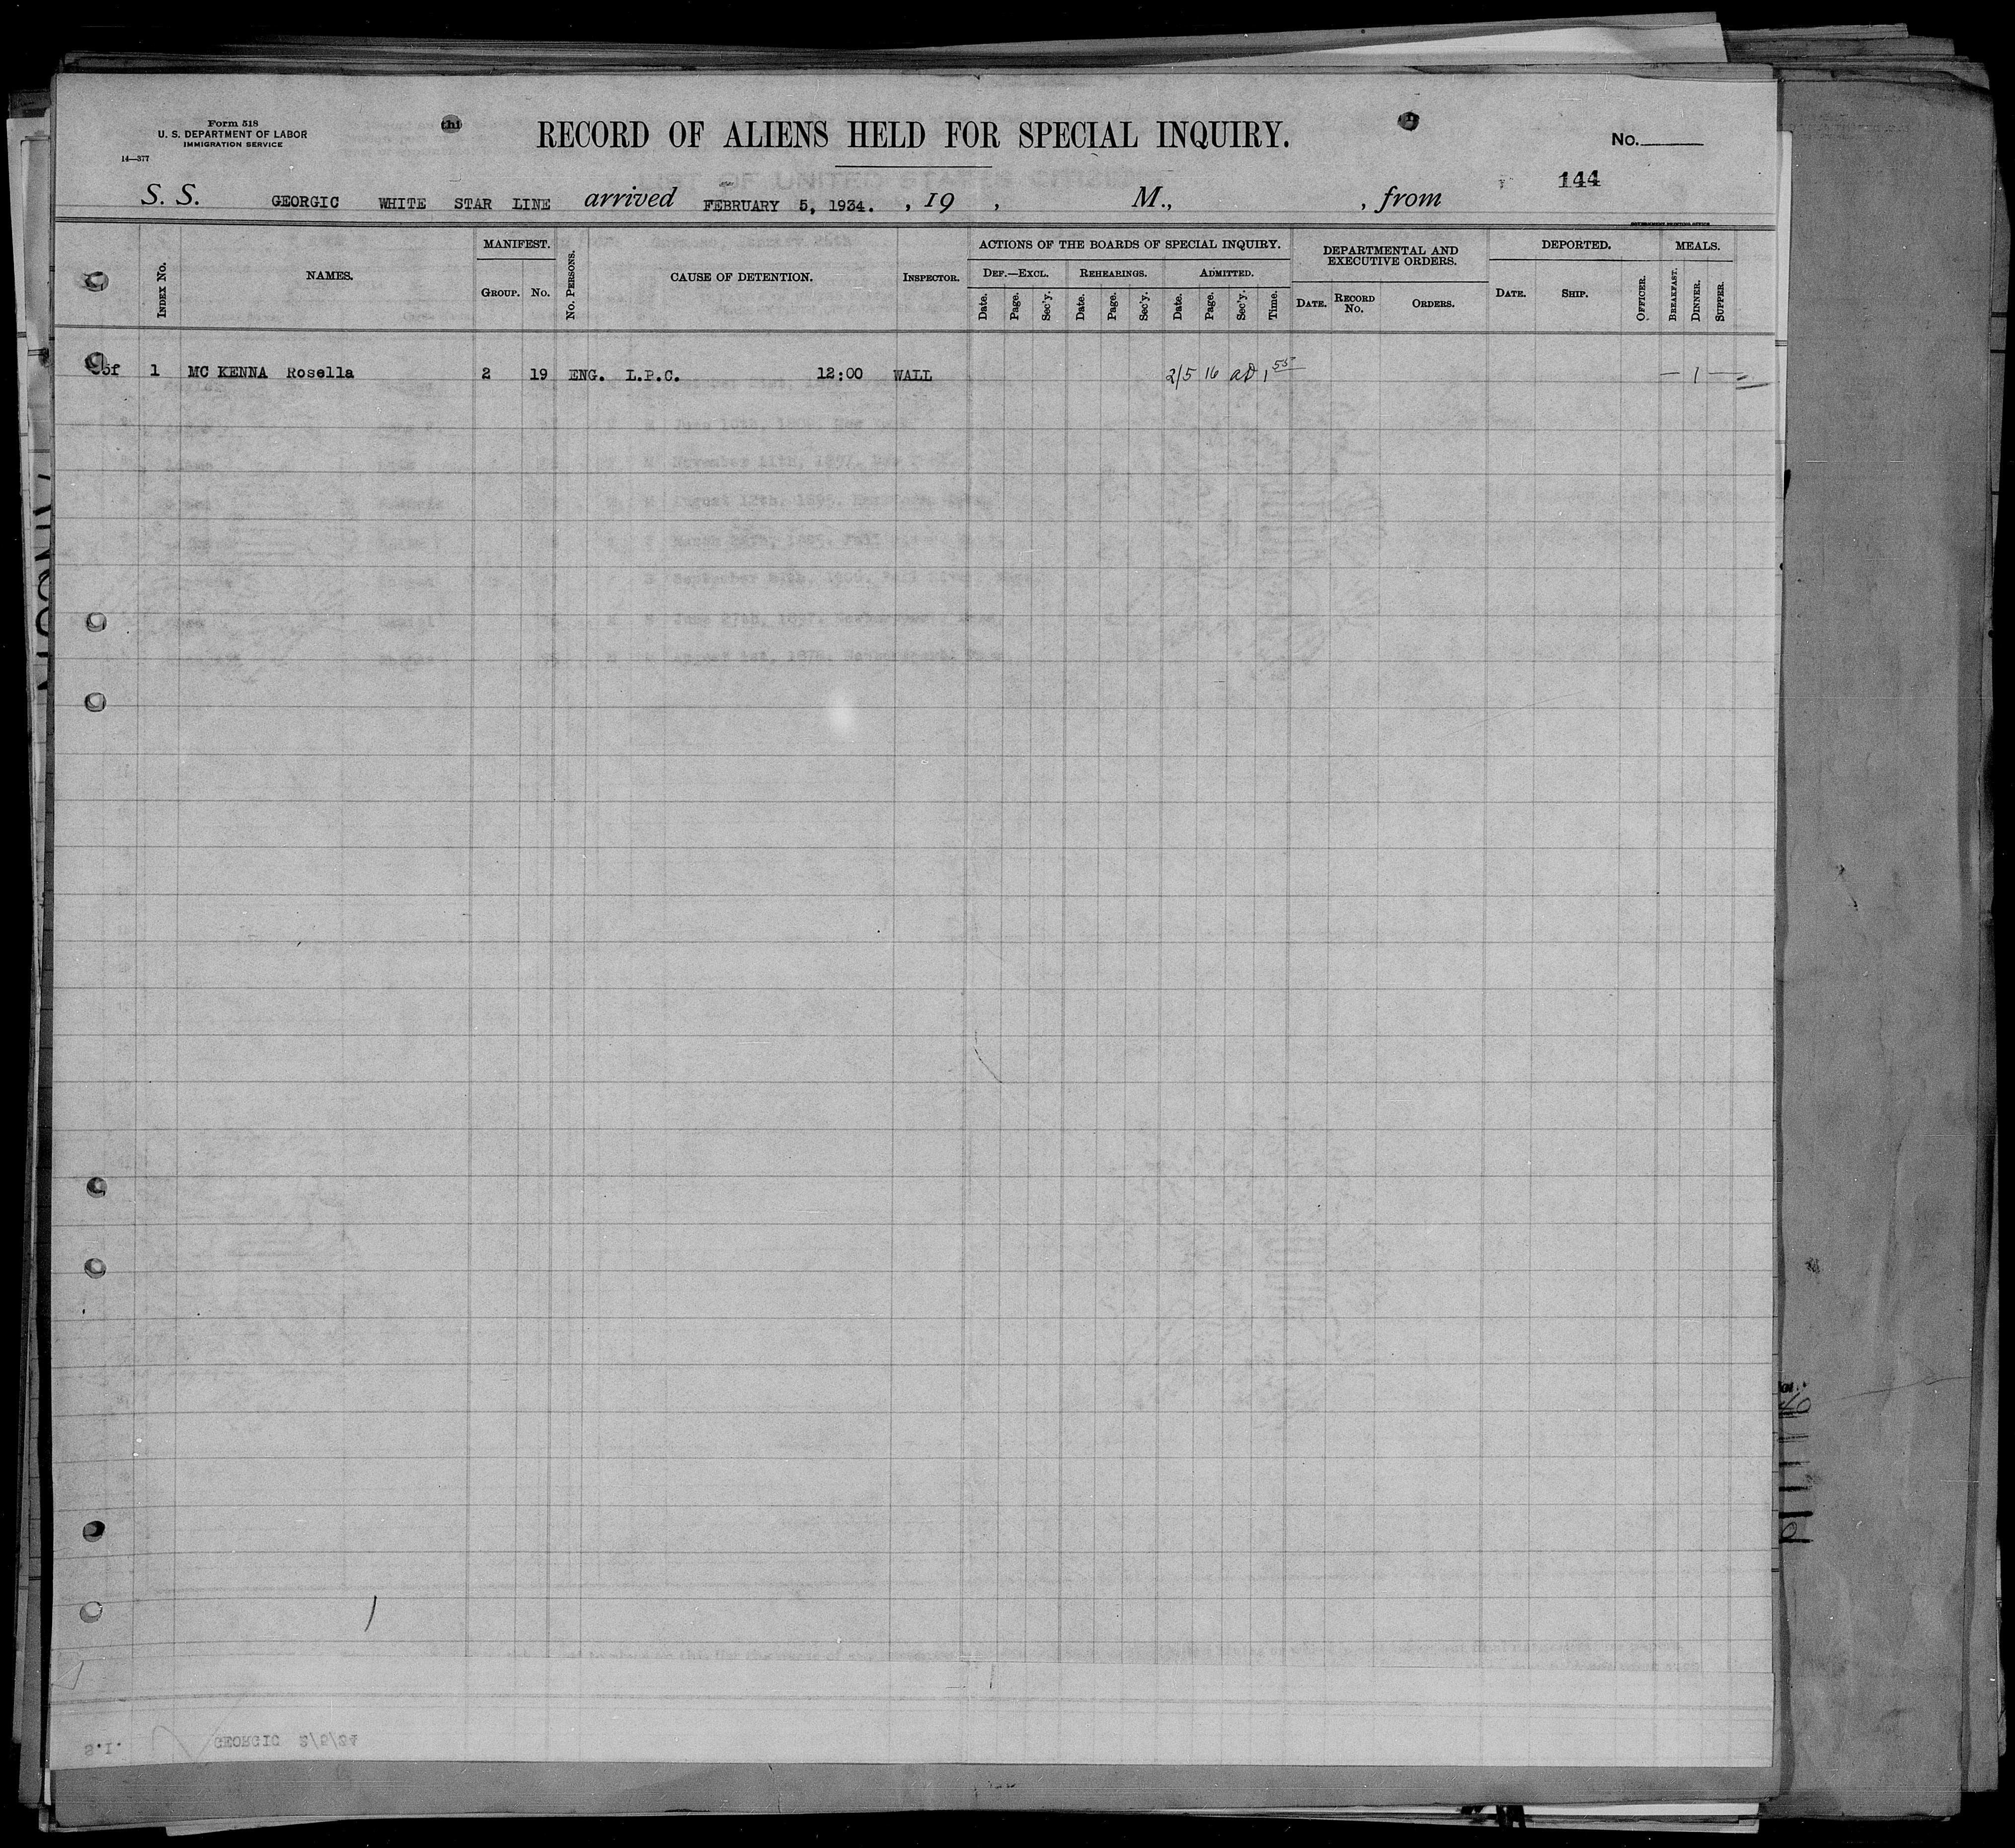 Form 518
U. S. DEPARTMENT OF LABOR
IMMIGRATION SERVICE
14—377
RECORD OF ALIENS HELD FOR SPECIAL INQUIRY.
No.
144
S. S. GEORGIC WHITE STAR LINE arrived FEBRUARY 5, 1934. , 19 , M., , from
GOVERNMENT PRINTING OFFICE
INDEX No. NAMES. MANIFEST. No. PERSONS. CAUSE OF DETENTION. INSPECTOR. ACTIONS OF THE BOARDS OF SPECIAL INQUIRY. DEPARTMENTAL AND EXECUTIVE ORDERS. DEPORTED. MEALS.
GROUP. No. DEF.—EXCL. REHEARINGS. ADMITTED. DATE. RECORD No. ORDERS. DATE. SHIP. OFFICER. BREAKFAST. DINNER. SUPPER.
Date. Page. Sec'y. Date. Page. Sec'y. Date. Page. Sec'y. Time.
1 MC KENNA Rosella 2 19 ENG. L.P.C. 12:00 WALL 2/5 16 1 55 — 1 —
S.I. GEORGIC 2/5/34